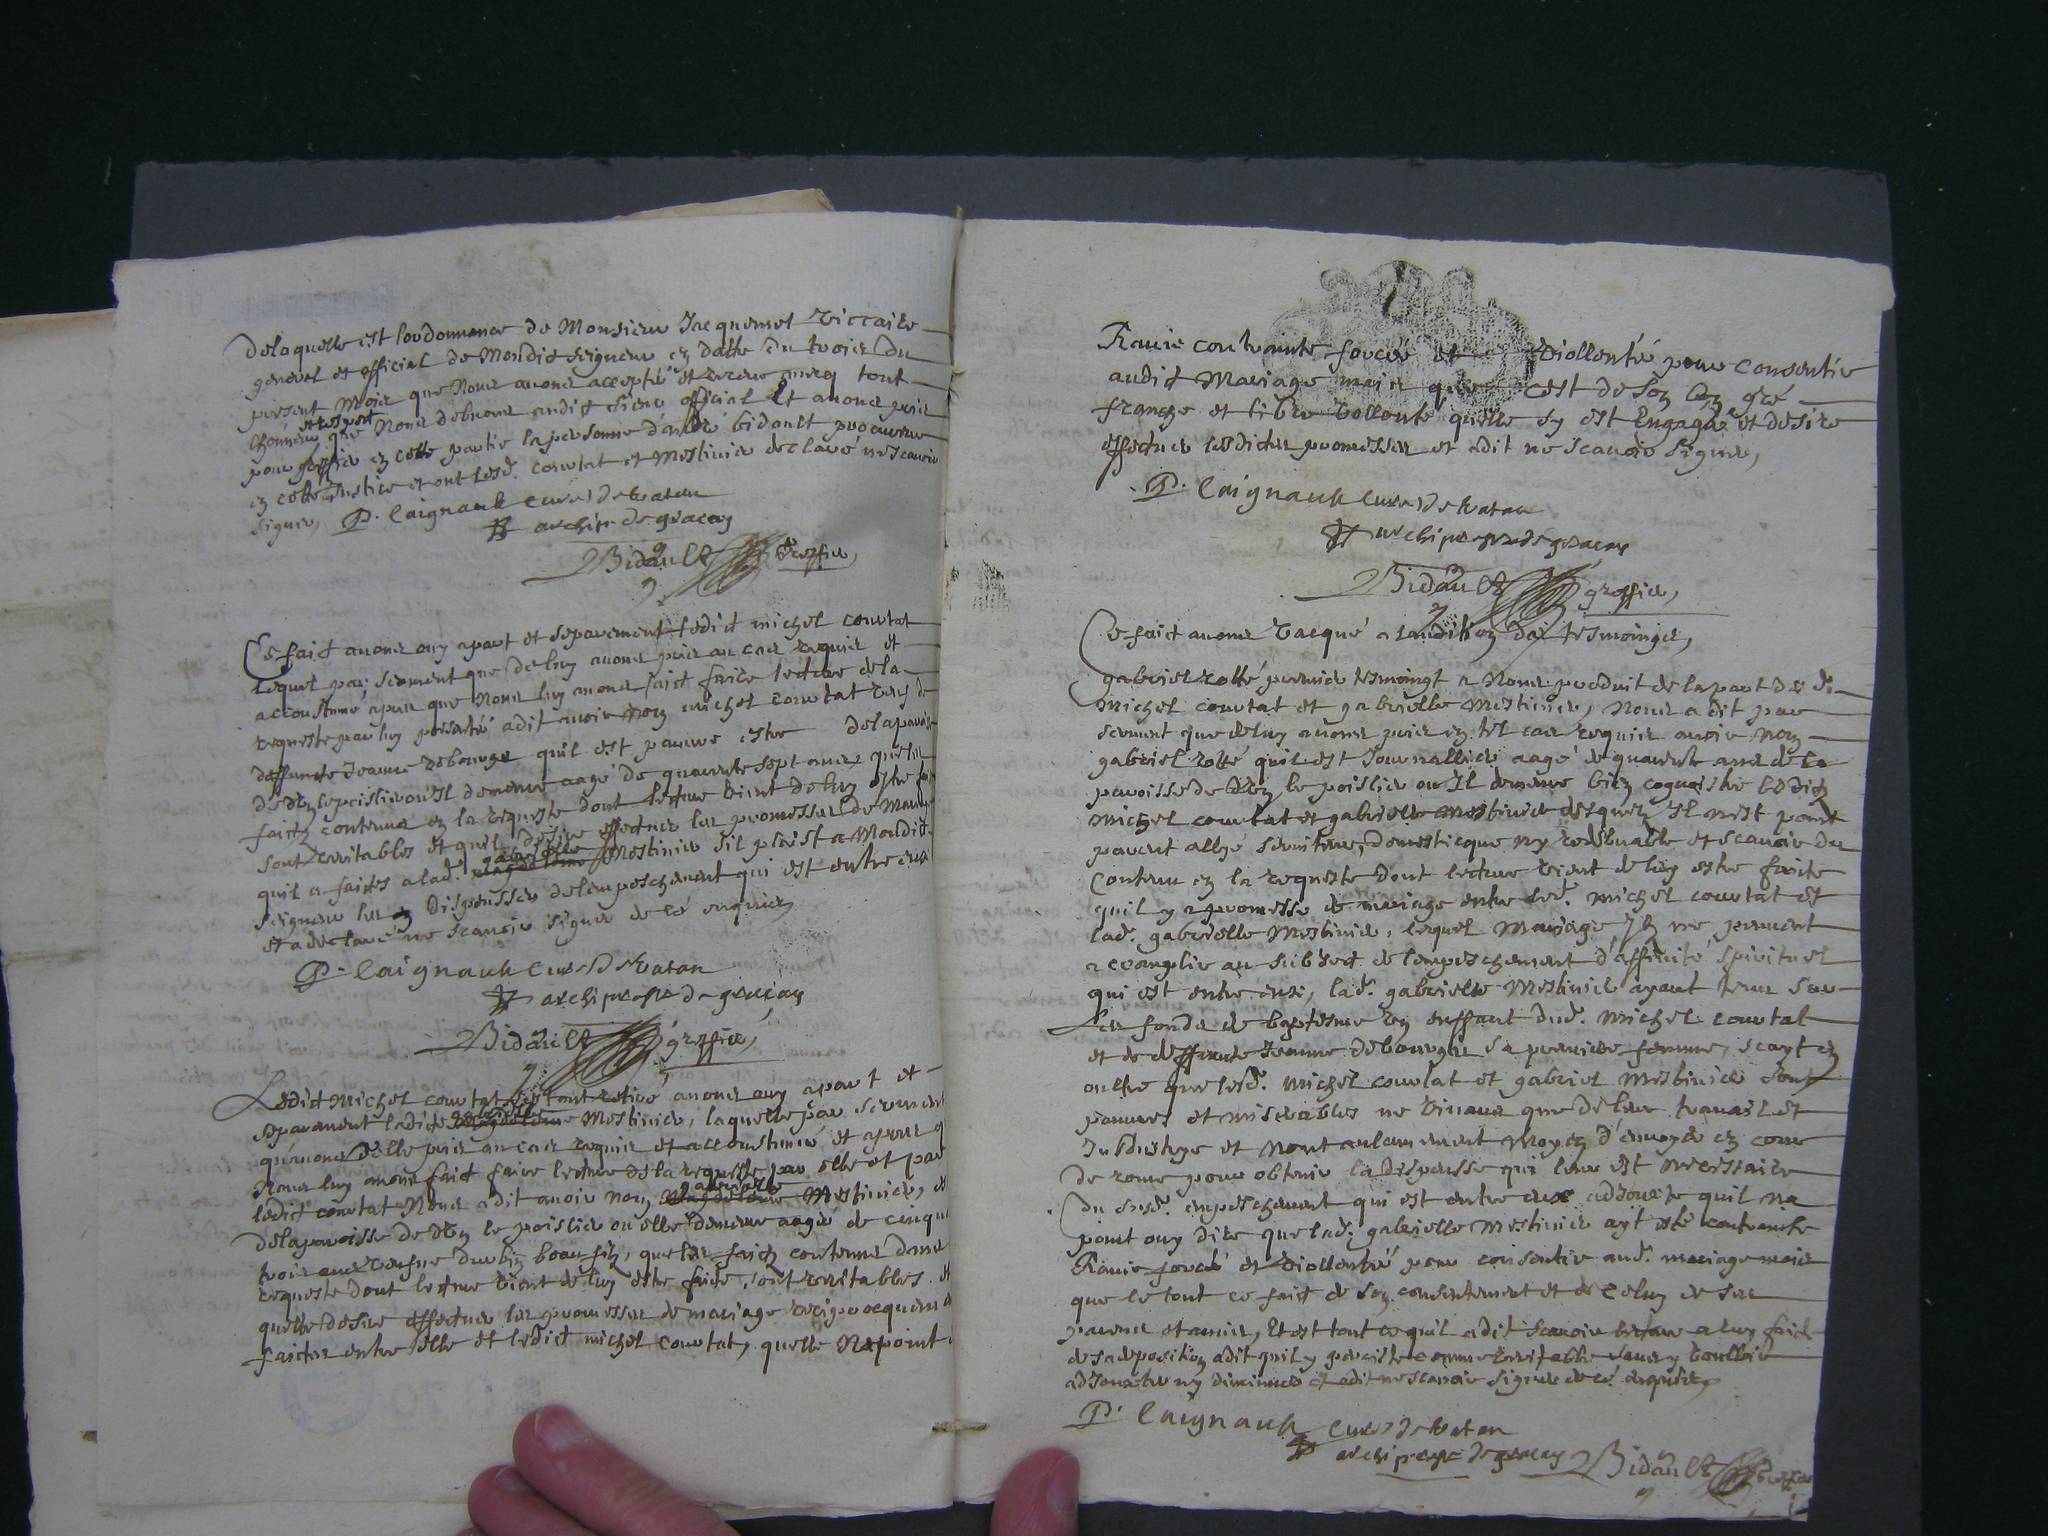 De laquelle est lordonnance de Monsieur Jacquemet viccaire
general et official de Mondict seigneur en datte du trois du
present mois que Nous auons accepté et receu auecq tout
et respect
lhonneur que Nous debuons audict sieur official Et auons pris
pour greffier en cette partie la personne d'andré bidault procureur
en cette Justice et ont lesd. courtat et Mestiuier declaré ne scauoir
signer, P. laignault curé de vatan
archip. de graçay
Bidault greffier,
Ce faict auons ouy apart et separement ledict michel courtat
lequel par serment que de luy auons pris au cas requis et
accoustumé apres que Nous luy auons faict faire lecture de la
requeste par luy presenté a dit auoir nom michel courtat veuf de
deffuncte Jeanne debourges quil est pauure estre de la paroisse
de le poislier ou Il demeure aagé de quarente sept annés que les
faicts contenus en la requeste dont lecture vient de luy estre faite
sont veritables et quil desire effectuer les promesses de mariage
gabrielle
quil a faites a lad. magdeleine Mestiuier sil plaist a Mondict
seigneur les en dispensser de lempeschement qui est entre eux
et a declaré ne scauoir signer de ce enquis
P. laignault curé de vatan
archiprestre de graçay
Bidault greffier,
Ledict Michel courtat sestant retiré auons ouy apart et
gabrielle
separement ladicte magdeleine Mestiuier, laquelle par serment
quauons delle pris au cas requis et accoustumé et apres q
Nous luy auons faict faire lecture de la requeste par elle et par
gabrielle
ledict courtat Nous a dit auoir nom magdeleine Mestiuier, et
de la paroisse de le poislier ou elle demeure aagée de cinqu
trois ans veufue beaufils, que les faicts contenus dans
requeste dont lecture vient de luy estre faite, sont veritables et
quelle desire effectuer les promesses de mariage reciproquement
faictes entre elle et ledict michel courtat, quelle Na point
Rauie contrainte forcée et viollentée pour consentir
audict Mariage mais que cest de son bon gré
franche et libre vollonté quelle sy est Engagée et desire
effectuer lesdictes promesses et a dit ne scauoir signer,
P. laignault curé de vatan
archiprestre de graçay
Bidault greffier,
Ce faict auons vacqué a laudition des tesmoings,
gabriel rotté premier tesmoingt a Nous produit de la part des d.
Michel courtat et gabrielle Mestiuier, Nous a dit par
serment que de luy auons pris en tel cas requis auoir nom
gabriel rotté quil est Journallier aagé de quarente ans de la
paroisse de le poislier ou Il demeure bien cognoistre lesdicts
michel courtat et gabrielle Mestiuier desquels Il nest point
parent allyé seruiteur, domesticque ny redebuable et scauoir du
Contenu en la requeste dont lecture vient de luy estre faicte
quil y a promesse de mariage entre led. Michel courtat et
lad. gabrielle Mestiuier, lequel Mariage Ils ne peuuent
accomplir au subiect de lempeschement d'affinité spirituel
qui est entre eux, lad. gabrielle Mestiuier ayant tenu sur
Les fonds de baptesme un enffant dud. Michel courtat
et de deffuncte Jeanne debourges sa premiere femme, scayt en
oultre que lesd. Michel courtat et gabriel Mestiuier sont
pauures et miserables ne viuans que de leur trauail et
Industrye et Nont aulcunement Moyen d'enuoyer en cour
de rome pour obtenir la dispensse qui leur est necessaire
du susd. empeschement qui est entre eux adiouste quil na
point ouy dire que lad. gabrielle Mestiuier ayt esté contrainte
Rauie forcé et viollentée pour consentir aud. mariage mais
que le tout ce faict de son consentement et de celuy de ses
parens et amis, Et est tout ce quil a dit scauoir lecture a luy faite
de sa deposition a dit quil y persiste comme veritable sans y voulloir
adiouster ny diminuer et a dit ne scauoir signer de ce enquis
P. laignault curé de vatan
archiprestre de graçay Bidault greffier